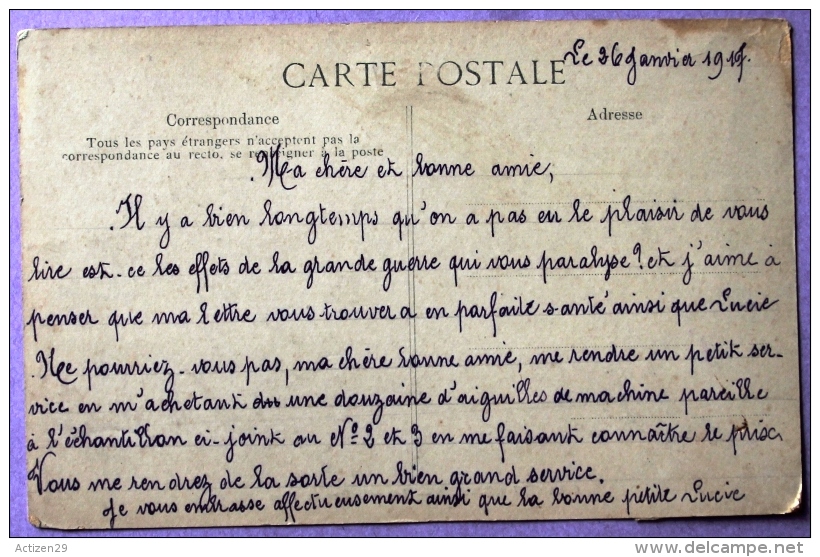 Le 26 Janvier 1915.
CARTE POSTALE
Correspondance
Adresse
Tous les pays étrangers n'acceptent pas la
correspondance au recto, se renseigner à la poste
Ma chère et bonne amie,
Il y a bien longtemps qu'on a pas eu le plaisir de vous
lire est-ce les effets de la grande guerre qui vous paralyse? et j'aime à
penser que ma lettre vous trouvera en parfaite santé ainsi que Lucie
Ne pourriez-vous pas, ma chère bonne amie, me rendre un petit ser-
vice en m'achetant une douzaine d'aiguilles de machine pareille
à l'échantillon ci-joint au Nº 2 et 3 en me faisant connaître le prix.
Vous me rendrez de la sorte un bien grand service.
Je vous embrasse affectueusement ainsi que la bonne petite Lucie
Actizen29
delcampe.net